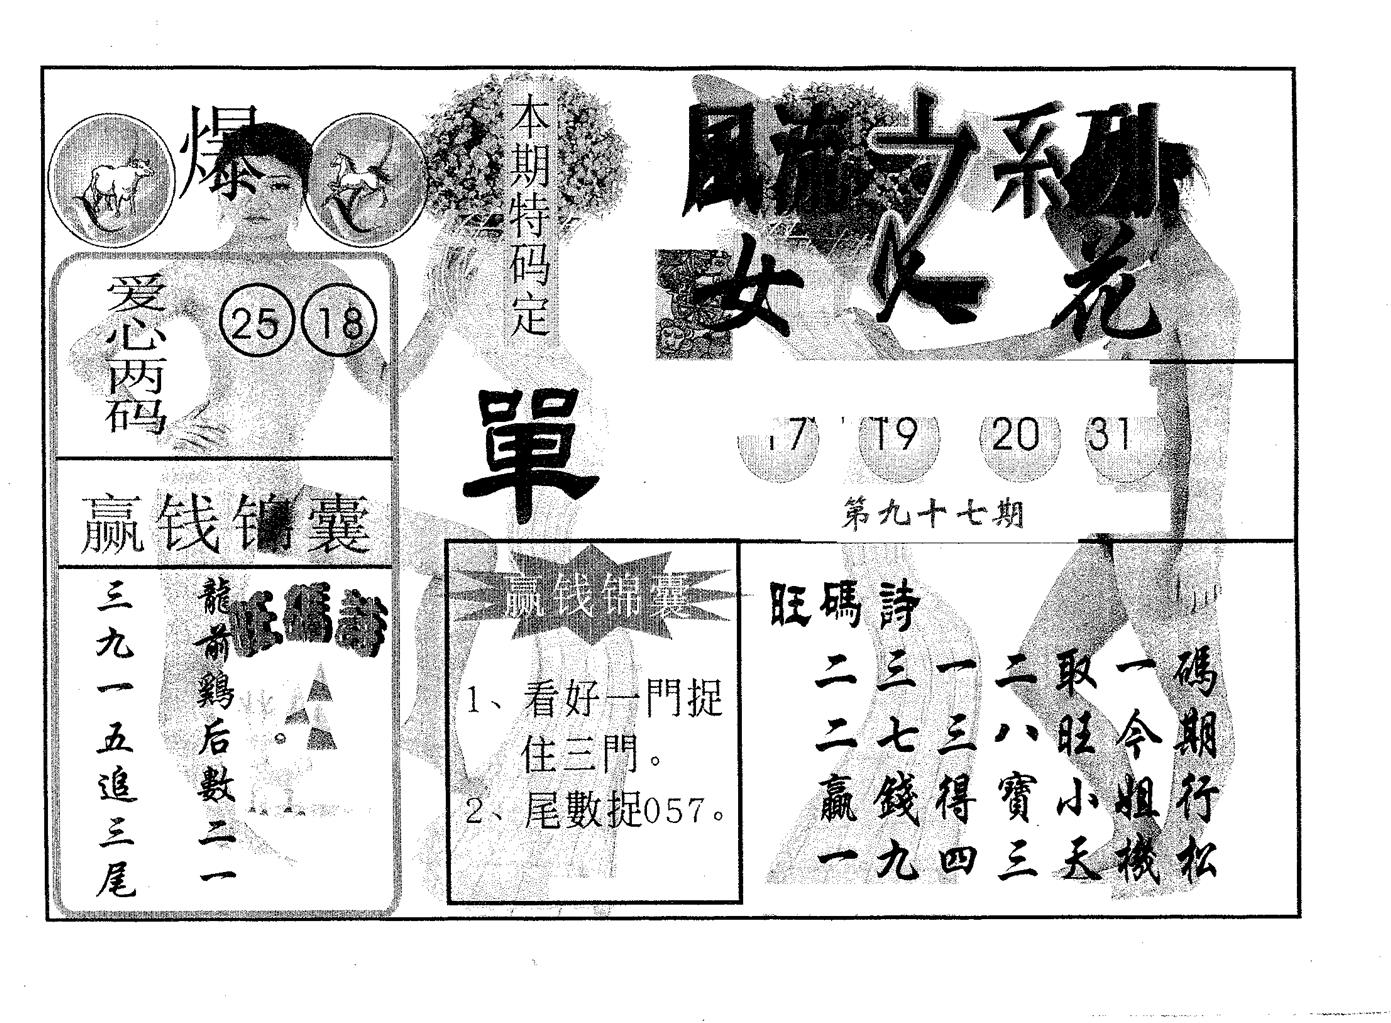 爆
爱心两码
25 18
赢钱锦囊
旺碼詩
龍前鷄后數二一
三九一五追三尾
本期特码定
單
風流之系列
女人花
17 19 20 31
第九十七期
赢钱锦囊
1、看好一門捉
住三門。
2、尾數捉057。
旺碼詩
二三一二取一碼
二七三八旺今期
贏錢得寶小姐行
一九四三天機松